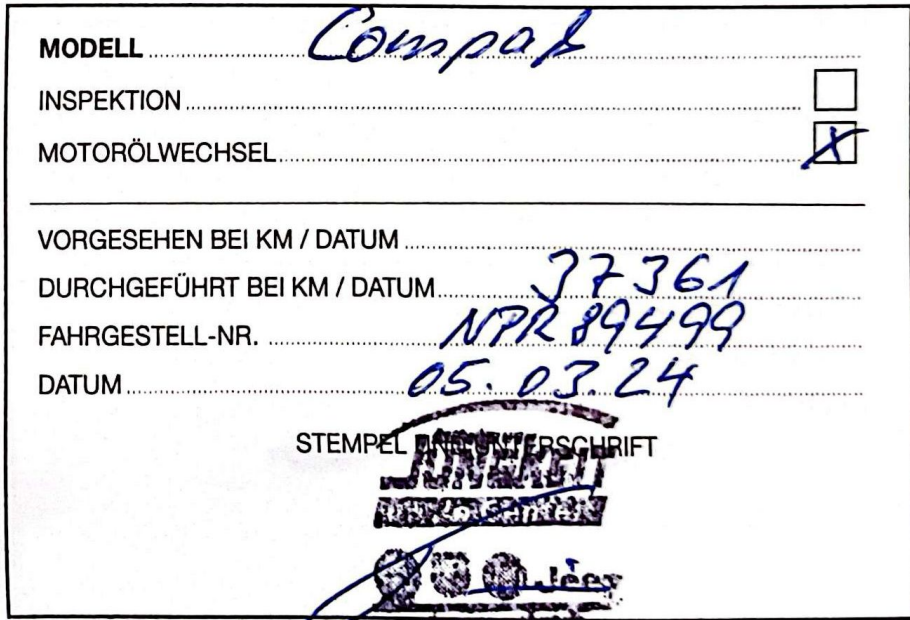 MODELL Compaß
INSPEKTION
MOTORÖLWECHSEL X
VORGESEHEN BEI KM / DATUM
DURCHGEFÜHRT BEI KM / DATUM 37361
FAHRGESTELL-NR. NPR89499
DATUM 05.03.24
STEMPEL UND UNTERSCHRIFT